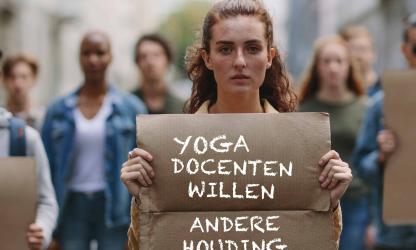 YOGA
DOCENTEN
WILLEN
ANDERE
HOUDING